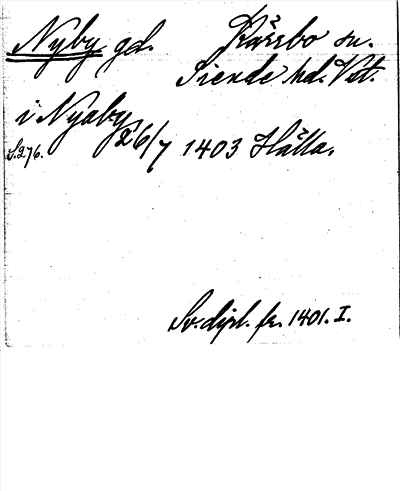 Nyby gd. Kärrbo sn.
Siende hd. Vst.
i Nyaby 26/7 1403 Hälla.
S.276.
Sv. dipl. fr. 1401. I.